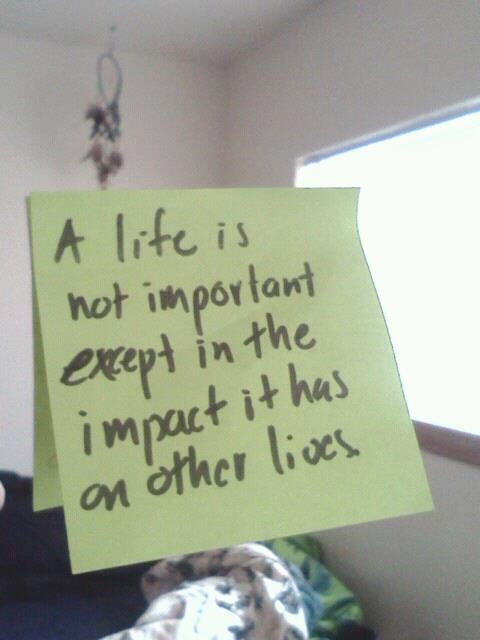 A life is
not important
except in the
impact it has
on other lives.